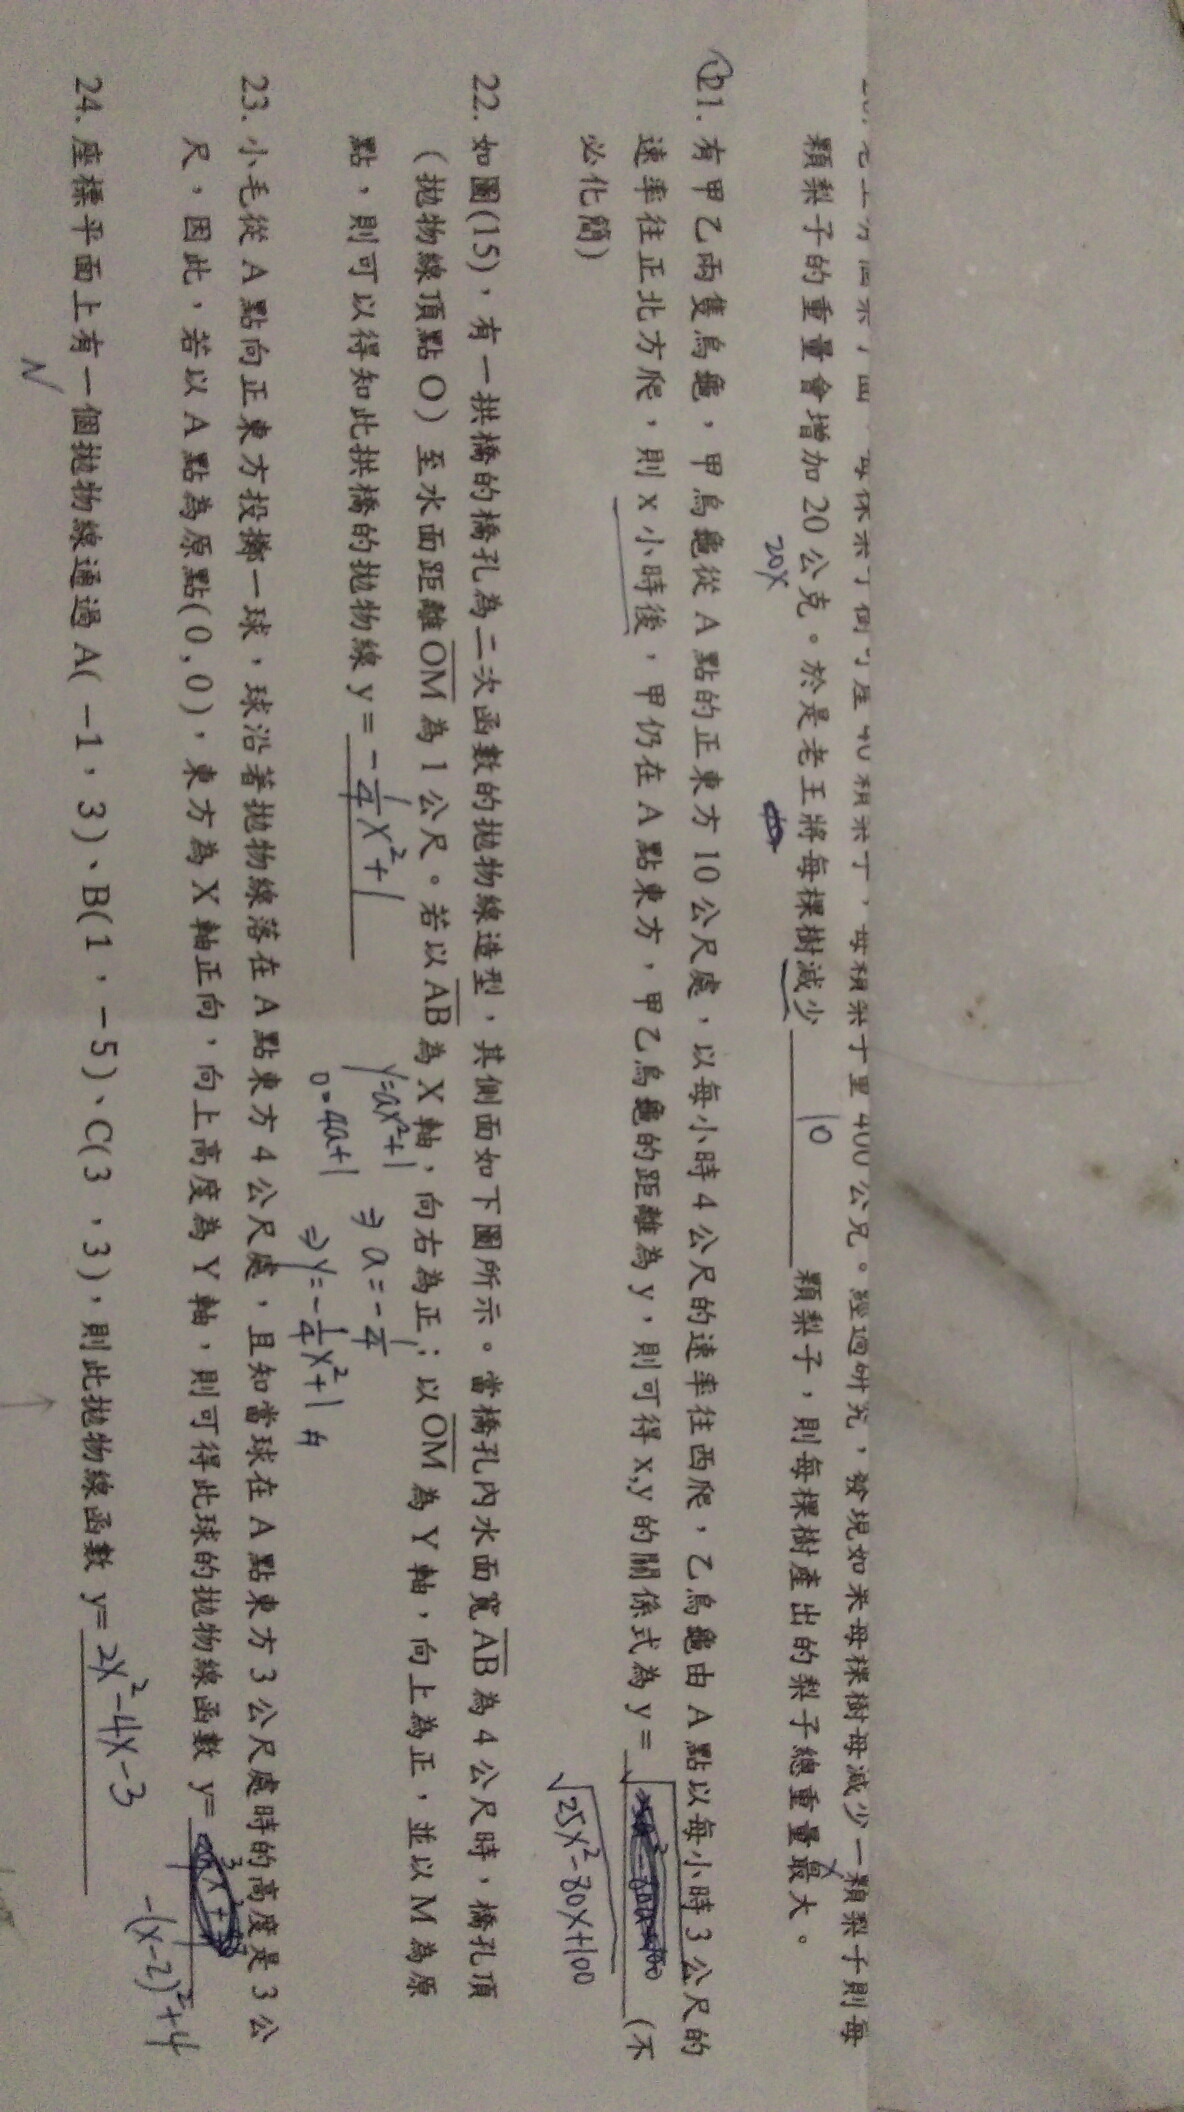 顆梨子的重量會增加20公克。於是老王將每棵樹減少 10 顆梨子，則每棵樹產出的梨子總重量最大。
20x
21. 有甲乙兩隻烏龜，甲烏龜從A點的正東方10公尺處，以每小時4公尺的速率往西爬，乙烏龜由A點以每小時3公尺的
速率往正北方爬，則x小時後，甲仍在A點東方，甲乙烏龜的距離為y，則可得x,y的關係式為y= (不
必化簡)
√25x²-80x+100
22. 如圖(15)，有一拱橋的橋孔為二次函數的拋物線造型，其側面如下圖所示。當橋孔內水面寬AB為4公尺時，橋孔頂
(拋物線頂點O)至水面距離OM為1公尺。若以AB為X軸，向右為正；以OM為Y軸，向上為正，並以M為原
點，則可以得知此拱橋的拋物線y= -1/4 x²+1
y=ax²+1 ⇒ a=-1/4
0=4a+1 ⇒ y=-1/4 x²+1
23. 小毛從A點向正東方投擲一球，球沿著拋物線落在A點東方4公尺處，且知當球在A點東方3公尺處時的高度是3公
尺，因此，若以A點為原點(0,0)，東方為X軸正向，向上高度為Y軸，則可得此球的拋物線函數y=
-(x-2)²+4
24. 座標平面上有一個拋物線通過A(-1，3)、B(1，-5)、C(3，3)，則此拋物線函數y= 2x²-4x-3